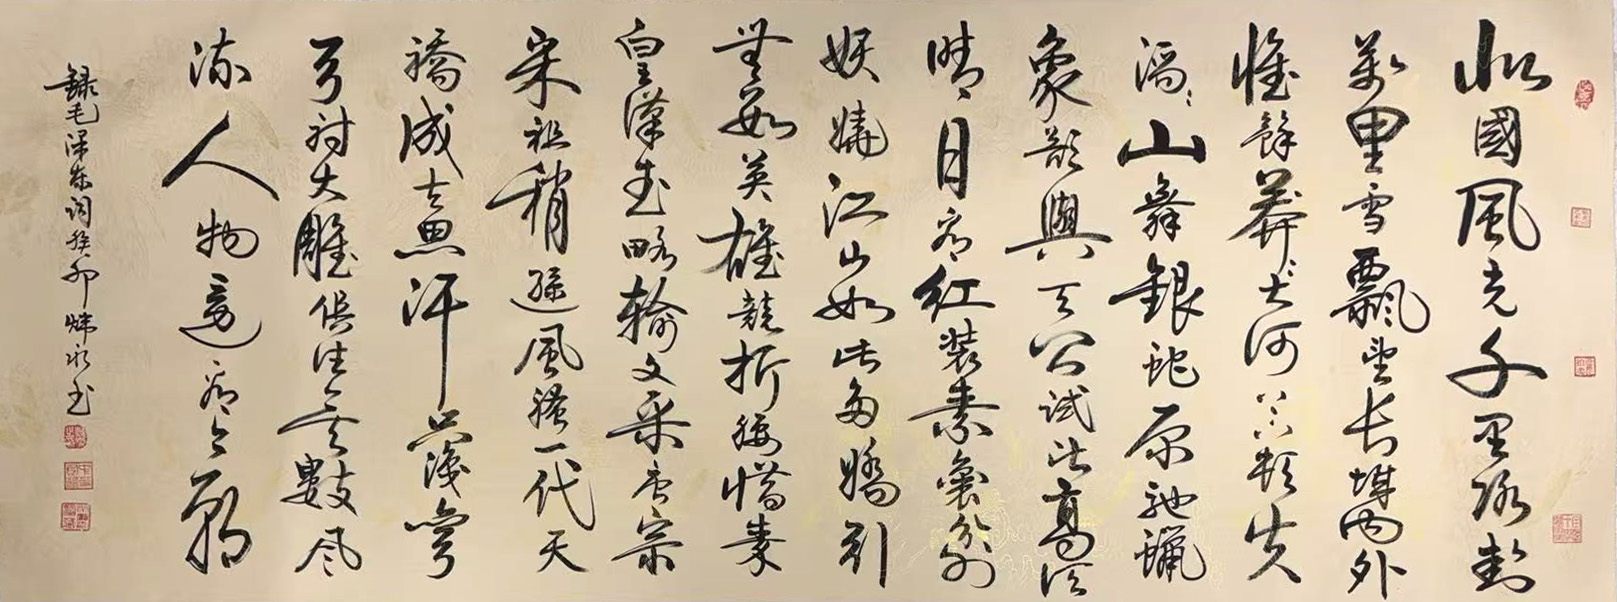 北國風光千里冰封
萬里雪飄望長城內外
惟餘莽莽大河上下頓失
滔滔山舞銀蛇原馳蠟
象欲與天公試比高須
晴日看紅裝素裹分外
妖嬈江山如此多嬌引
無數英雄競折腰惜秦
皇漢武略輸文采唐宗
宋祖稍遜風騷一代天
驕成吉思汗只識彎
弓射大雕俱往矣數风
流人物還看今朝
錄毛澤東詞癸卯煒永书